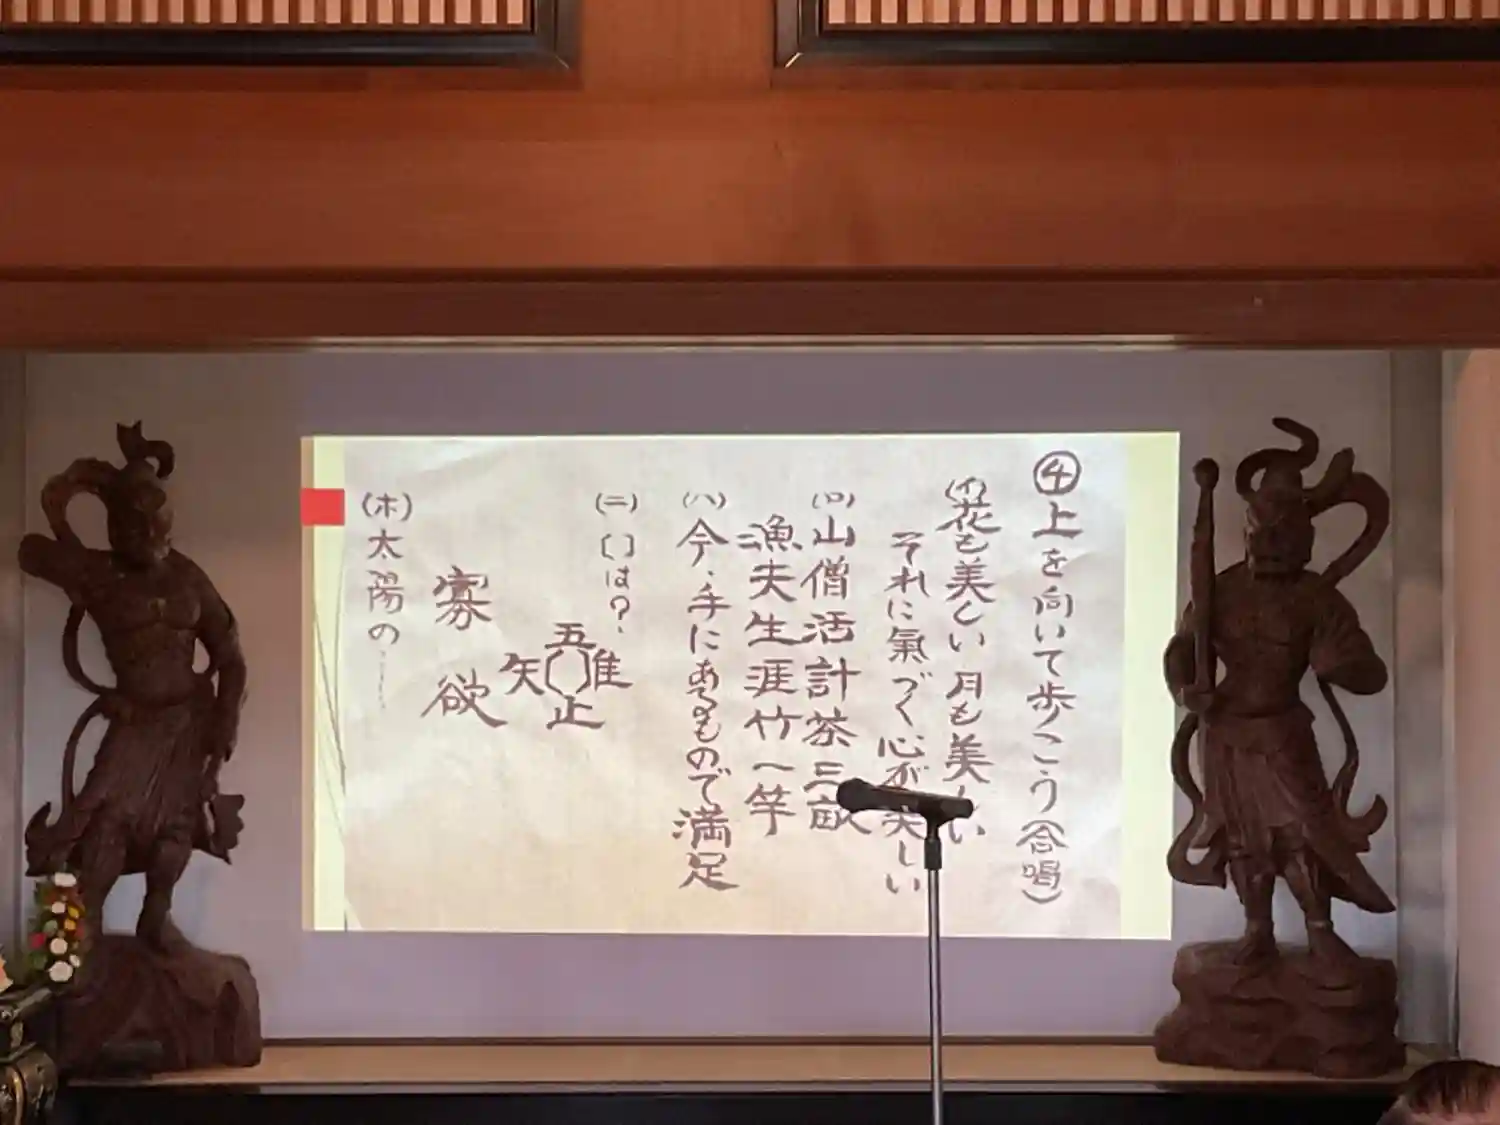 ④上を向いて歩こう(合唱)
(イ)花も美しい 月も美しい
それに氣づく心が美しい
(ロ)山僧活計茶三畝
漁夫生涯竹一竿
(ハ)今、手にあるもので満足
(ニ)〔 〕は?
五
矢〔 〕隹
止
寡欲
(ホ)太陽の……